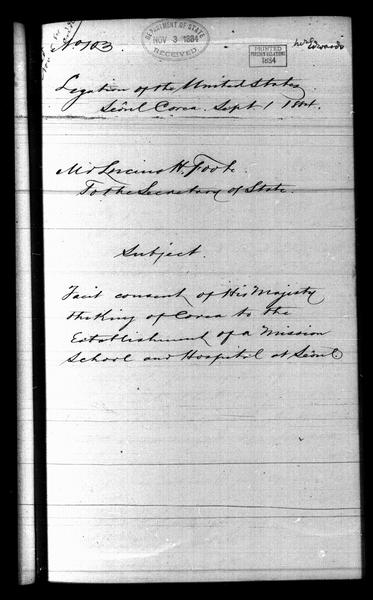 No 103.
DEPARTMENT OF STATE
NOV 3 1884
RECEIVED
PRINTED
FOREIGN RELATIONS
1884
Legation of the United States
Séoul Corea. Sept. 1 1884.
Mr Lucius H. Foote
To the Secretary of State.
Subject.
Tacit consent of His Majesty
the King of Corea to the
Establishment of a Mission
School and Hospital at Séoul.